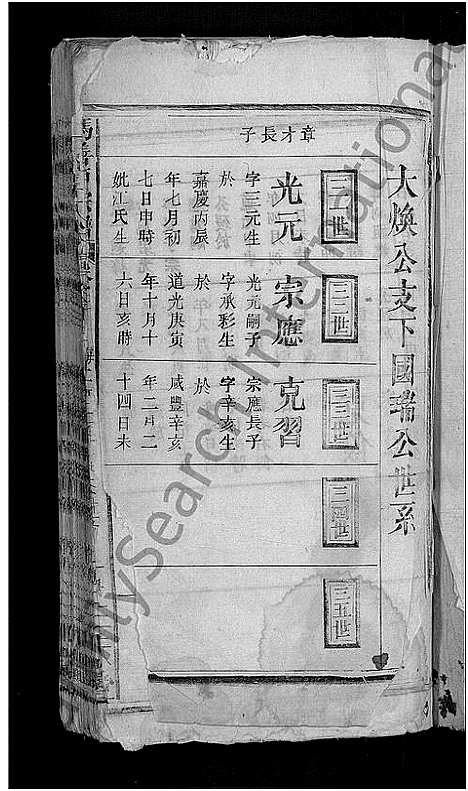 大煥公支下國瑞公世系
三一世
三二世
三三世
三四世
三五世
章才長子
光元
字三元生
於
嘉慶丙辰
年七月初
七日申時
妣江氏生
宗應
光元嗣子
字承彩生
於
道光庚寅
年十月十
六日亥時
克習
宗應長子
字辛亥生
於
咸豐辛亥
年二月二
十四日未